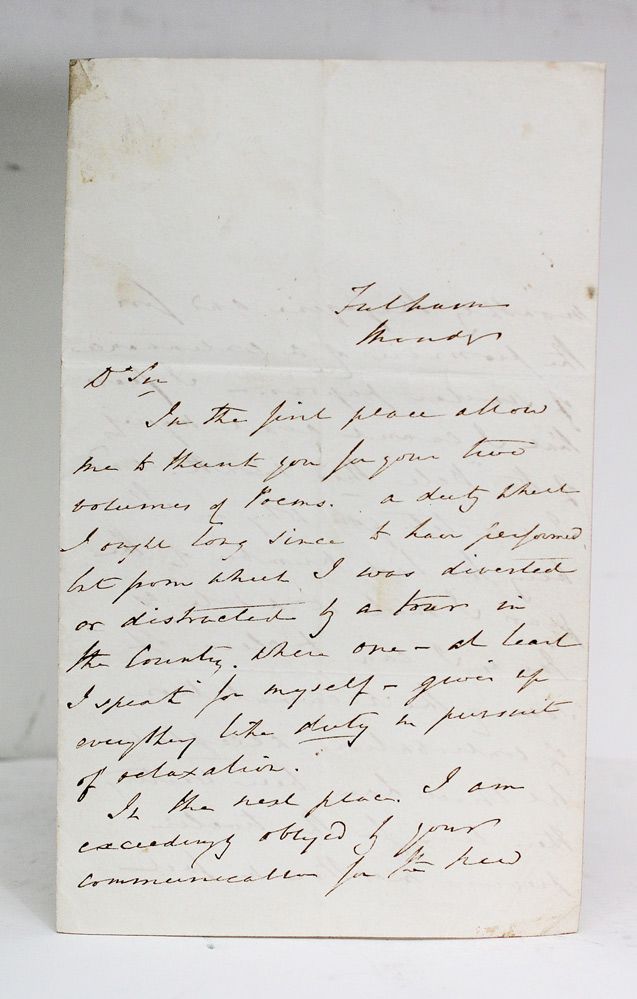 Fulham
Monday
Dr Sir
In the first place allow
me to thank you for your two
volumes of Poems. a duty which
I ought long since to have performed
but from which I was diverted
or distracted by a tour in
the Country. where one - at least
I speak for myself - gives up
everything like duty in pursuit
of relaxation.
In the next place. I am
exceedingly obliged by your
communication for the New